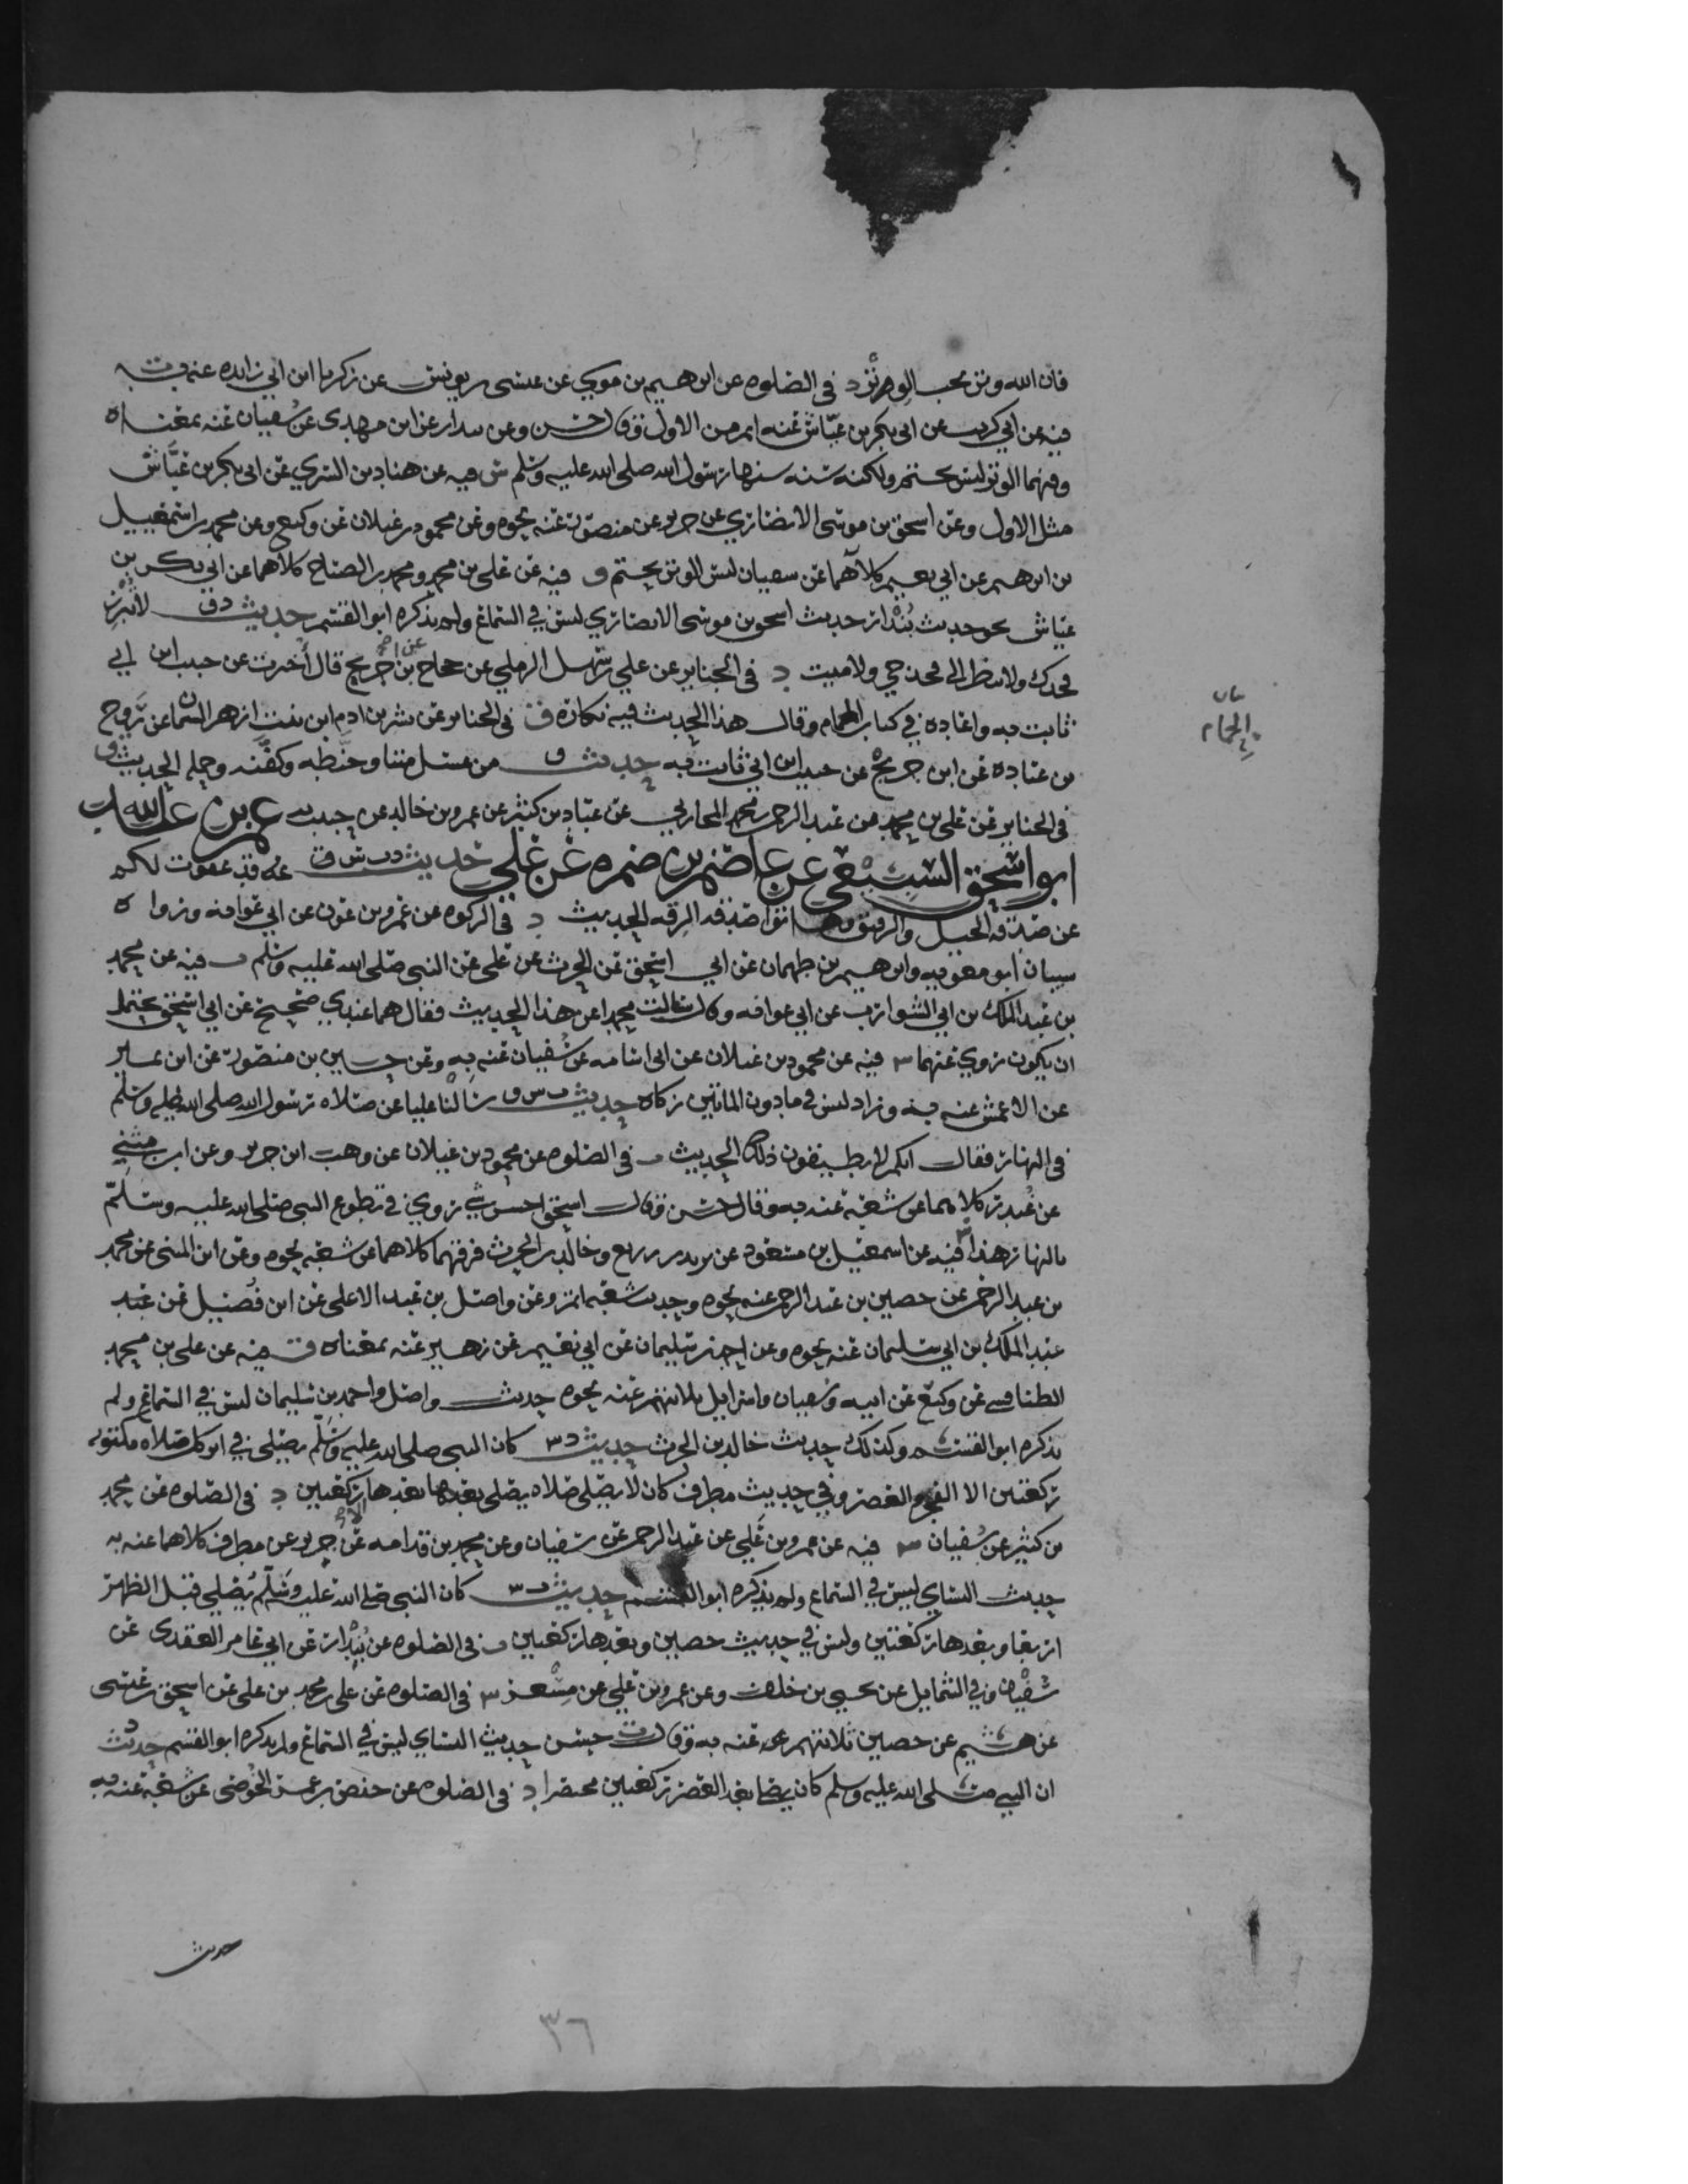 فان الله وتر يحب الوتر د في الصلوه عن ابرهيم بن موسى عن عيسى بن يونس عن زكريا ابن ابي زايده عنه به ت
فيه عن ابي كريب عن ابي بكر بن عياش عنه اتم من الاول وقال حسن وعن بندار عن ابن مهدي عن سفيان عنه بمعناه
وفيهما الوتر ليس بحتم ولكنه سنه سنها رسول الله صلى الله عليه وسلم س فيه عن هناد بن السري عن ابي بكر بن عياش
مثل الاول وعن اسحق بن موسى الانصاري عن جرير عن منصور عنه نحوه وعن محمود بن غيلان عن وكيع وعن محمد بن اسمعيل
بن ابرهيم عن ابي نعيم كلاهما عن سفيان ليس الوتر بحتم ق فيه عن علي بن محمد ومحمد بن الصباح كلاهما عن ابي بكر بن
عياش نحو حديث بندار حديث اسحق بن موسى الانصاري ليس في السماع ولم يذكره ابو القسم حديث د ق لا تبرز
فخدك ولا تنظر الى فخذ حي ولا ميت د في الجنايز عن علي بن سهل الرملي عن حجاج عن ابن جريج قال أخبرت عن حبيب ابن ابي
ثابت به واعاده في كتاب الحمام وقال هذا الحديث فيه نكارة ق في الجنايز عن بشر بن ادم ابن بنت ازهر السمان عن روح
بن عباده عن ابن جريج عن حبيب ابن ابي ثابت به حديث ق من غسل ميتا وحنطه وكفنه وحمله الحديث ق
في الجنايز عن علي بن محمد عن عبد الرحمن بن محمد المحاربي عن عباد بن كثير عن عمرو بن خالد عن حبيب به عمرو بن عبد الله
ابو اسحق السبيعي عن عاصم بن ضمره عن علي حديث د ت س ق قد عفوت لكم
عن صدقه الخيل والرقيق فهاتوا صدقه الرقه الحديث د في الزكوه عن عمرو بن عون عن ابي عوانه ورواه
سيبان ابو معويه وابرهيم بن طهمان عن ابي اسحق عن الحرث عن علي عن النبي صلى الله عليه وسلم ت فيه عن محمد
بن عبد الملك بن ابي الشوارب عن ابي عوانه وقال سالت محمدا عن هذا الحديث فقال هما عندي صحيح عن ابي اسحق يحتمل
ان يكون روي عنهما س فيه عن محمود بن غيلان عن ابي اسامه عن سفيان عنه به وعن حسين بن منصور عن ابن نمير
عن الاعمش عنه به وزاد ليس في ما دون المائتين زكاه حديث ت س ق سالنا عليا عن صلاه رسول الله صلى الله عليه وسلم
في النهار فقال انكم لا تطيقون ذلك الحديث ت في الصلوه عن محمود بن غيلان عن وهب ابن جرير وعن ابن مثنى
عن غندر كلاهما عن شعبة عنه به وقال حسن وقال اسحق احسن شي روي في تطوع النبي صلى الله عليه وسلم
بالنهار هذا س فيه عن اسمعيل بن مسعود عن يزيد بن زريع وخالد بن الحرث فرقهما كلاهما عن شعبه نحوه وعن ابن المثنى عن محمد
بن عبد الرحمن عن حصين بن عبد الرحمن عنه نحوه وحديث شعبه اتم وعن واصل بن عبد الاعلى عن ابن فضيل عن عبد
عبد الملك بن ابي سليمان عنه نحوه وعن احمد بن سليمان عن ابي نعيم عن زهير عنه بمعناه ق فيه عن علي بن محمد
الطنافسي عن وكيع عن ابيه وسفيان واسرايل ثلاثتهم عنه نحوه حديث واصل واحمد بن سليمان ليس في السماع ولم
يذكره ابو القسم وكذلك حديث خالد بن الحرث حديث د س كان النبي صلى الله عليه وسلم يصلي في اثر كل صلاه مكتوبه
ركعتين الا الفجر والعصر وفي حديث مطرف كان لا يصلي صلاه يصلى بعدها الا صلى بعدها ركعتين د في الصلوه عن محمد
بن كثير عن سفيان س فيه عن عمرو بن علي عن عبد الرحمن عن سفيان وعن محمد بن قدامه عن جرير عن مطرف كلاهما عنه به
حديث النساي ليس في السماع ولم يذكره ابو القسم حديث ت س كان النبي صلى الله عليه وسلم يصلي قبل الظهر
اربعا وبعدها ركعتين وليس في حديث حصين وبعدها ركعتين ت في الصلوه عن بندار عن ابي عامر العقدي عن
سفيان وفي الشمايل عن يحيى بن خلف وعن عمرو بن علي عن مسعر س في الصلوه عن علي بن محمد بن علي عن اسحق بن عيسى
عن هشيم عن حصين ثلاثتهم عنه به وقال ت حسن حديث النساي ليس في السماع ولم يذكره ابو القسم حديث د
ان النبي صلى الله عليه وسلم كان يصلي بعد العصر ركعتين مختصرا د في الصلوه عن حفص بن عمر الحوضي عن شعبة عنه به
الحمام
حديث
٣٦